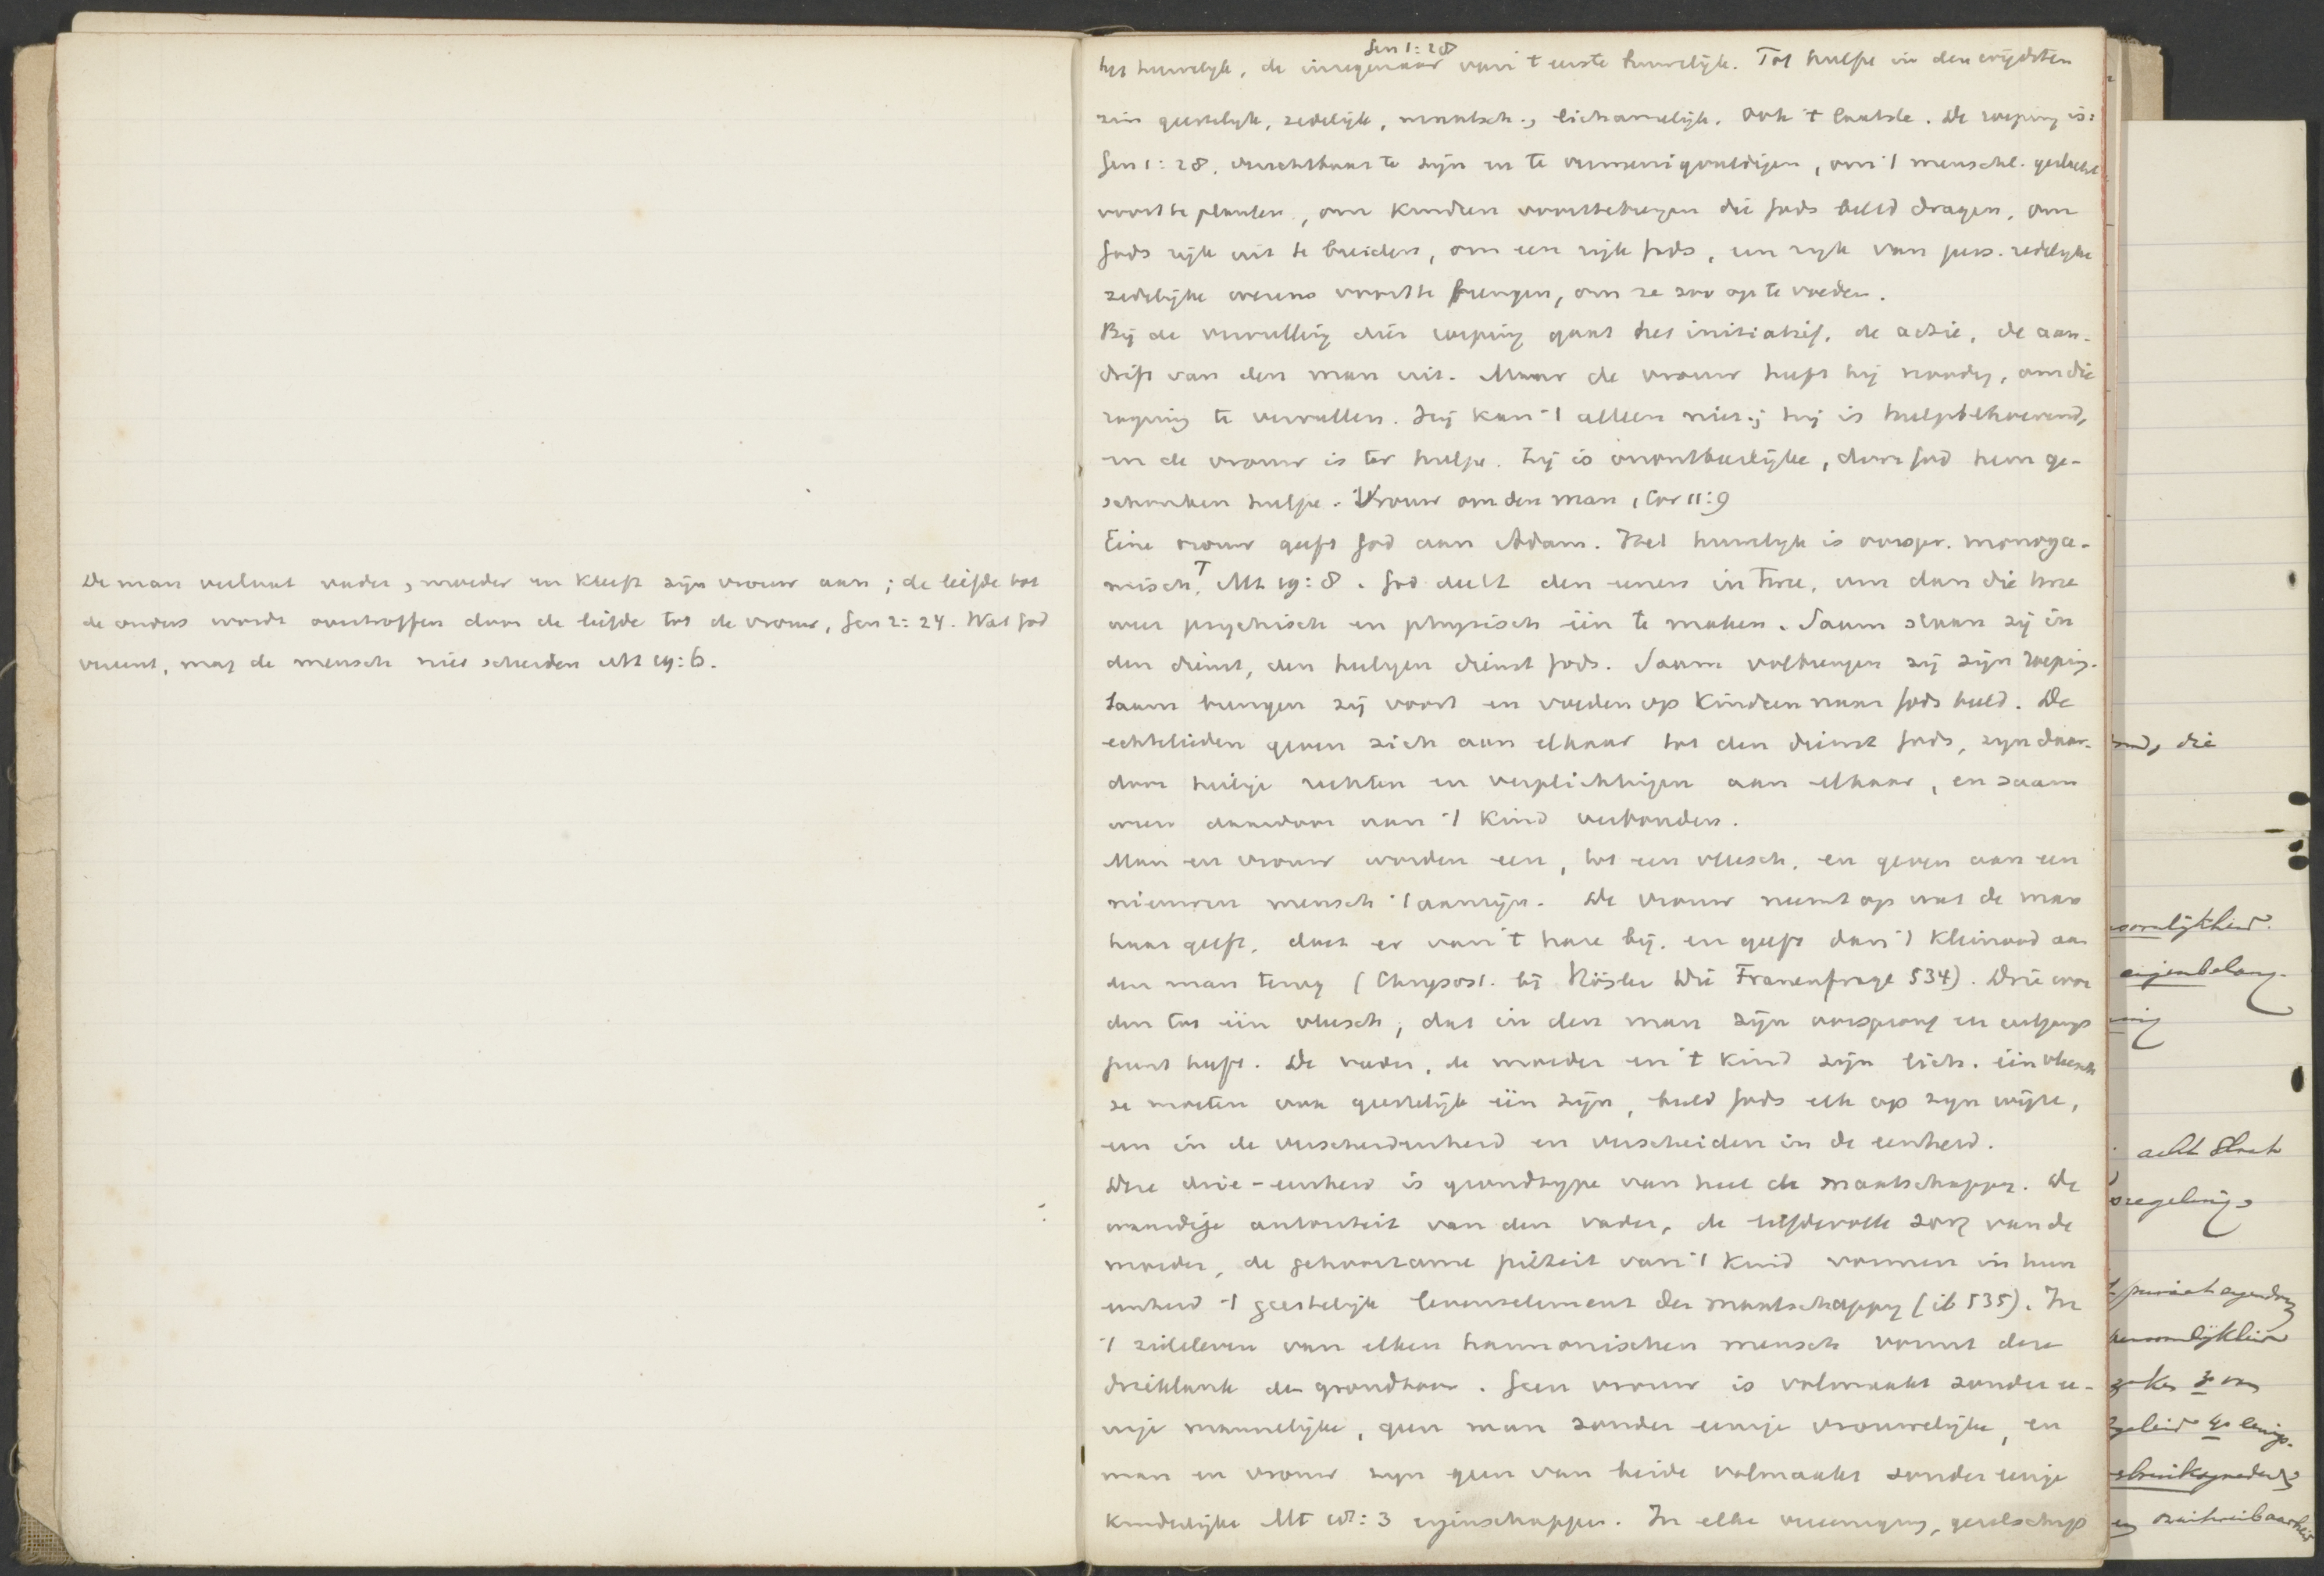 De man verlaat vader, moeder en kleeft zijn vrouw aan; de liefde tot
de ouders wordt overtroffen door de liefde tot de vrouw, Gen 2:24. Wat God
vereent, mag de mensch niet scheiden Mt 19:6.
Gen 1:28
het huwelijk, de inzegenaar van 't eerste huwelijk. Tot hulpe in den wijdsten
zin geestelijk, zedelijk, maatsch., lichamelijk. Ook 't laatste. De roeping is:
Gen 1:28. vruchtbaar te zijn en te vermenigvuldigen, om 't menschel. geslacht
voort te planten, om kinderen voorttebrengen die Gods beeld dragen, om
Gods rijk uit te breiden, om een rijk Gods, een rijk van pers. redelijke
zedelijke wezens voort te brengen, om ze zoo op te voeden.
Bij de vervulling dier roeping gaat het initiatief, de actie, de aan-
drift van den man uit. Maar de vrouw heeft hij noodig, om die
roeping te vervullen. Hij kan 't alleen niet; hij is hulpbehoevend,
en de vrouw is ter hulpe. Zij is onontbeerlijke, door God hem ge-
schonken hulpe. Vrouw om den man 1 Cor 11:9
Eéne vrouw geeft God aan Adam. Het huwelijk is oorspr. monoga-
misch, Mt 19:8. God deelt den eenen in twee, om dan die twee
weer psychisch en physisch één te maken. Saam staan zij in
den dienst, den heiligen dienst Gods. Saam volbrengen zij zijn roeping.
Saam brengen zij voort en voeden op kinderen naar Gods beeld. De
echtelieden geven zich aan elkaar tot den dienst Gods, zijn daar-
door heilige rechten en verplichtingen aan elkaar, en saam
weer daardoor aan 't kind verbonden.
Man en vrouw worden een, tot een vleesch, en geven aan een
nieuwen mensch 't aanzijn. De vrouw neemt op wat de man
haar geeft, doet er van 't hare bij, en geeft dan 't kleinood aan
den man terug (Chrysost. bij Rösler Die Frauenfrage 534). Drie wor
den tot één vleesch, dat in den man zijn oorsprong en uitgangs
punt heeft. De vader, de moeder en 't kind zijn lich. één vleesch
ze moeten ook geestelijk één zijn, beeld Gods elk op zijn wijze,
een in de verscheidenheid en verscheiden in de eenheid.
Deze drie-eenheid is grondtype van heel de maatschappij. De
waardige autoriteit van den vader, de liefdevolle zorg van de
moeder, de gehoorzame piëteit van 't kind vormen in hun
eenheid 't geestelijk levenselement der maatschappij (ib 535). In
't zieleleven van elken harmonischen mensch vormt deze
drieklank den grondtoon. Geen vrouw is volmaakt zonder ee-
nige mannelijke, geen man zonder eenige vrouwelijke, en
man en vrouw zijn geen van beide volmaakt zonder eenige
kinderlijke Mt 18:3 eigenschappen. In elke vereeniging, gezelschap
die
eigenbelang.
acht Staat
regeling